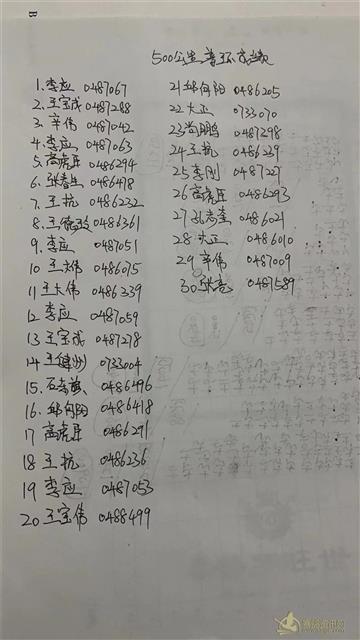 B
500公里
1.李应 0487067
2.王宝成 0487288
3.辛伟 0487042
4.李应 0487063
5.高虎臣 0486294
6.张春生 0486478
7.王抗 0486232
8. 0486361
9.李应 0487051
10 王大伟 0486075
11 王大伟 0486339
12 李应 0487059
13 王宝成 0487278
14 0733004
15. 0486496
16.邱向阳 0486418
17 高虎臣 0486291
18 王抗 0486236
19 李应 0487053
20 王宝伟 0488499
21 邱向阳 0486205
22 大正 0733070
23 尚鹏 0487298
24 王抗 0486229
25 李刚 0487227
26 高虎臣 0486293
27 0486021
28 大正 0486010
29 辛伟 0487009
30 张亮 0487589